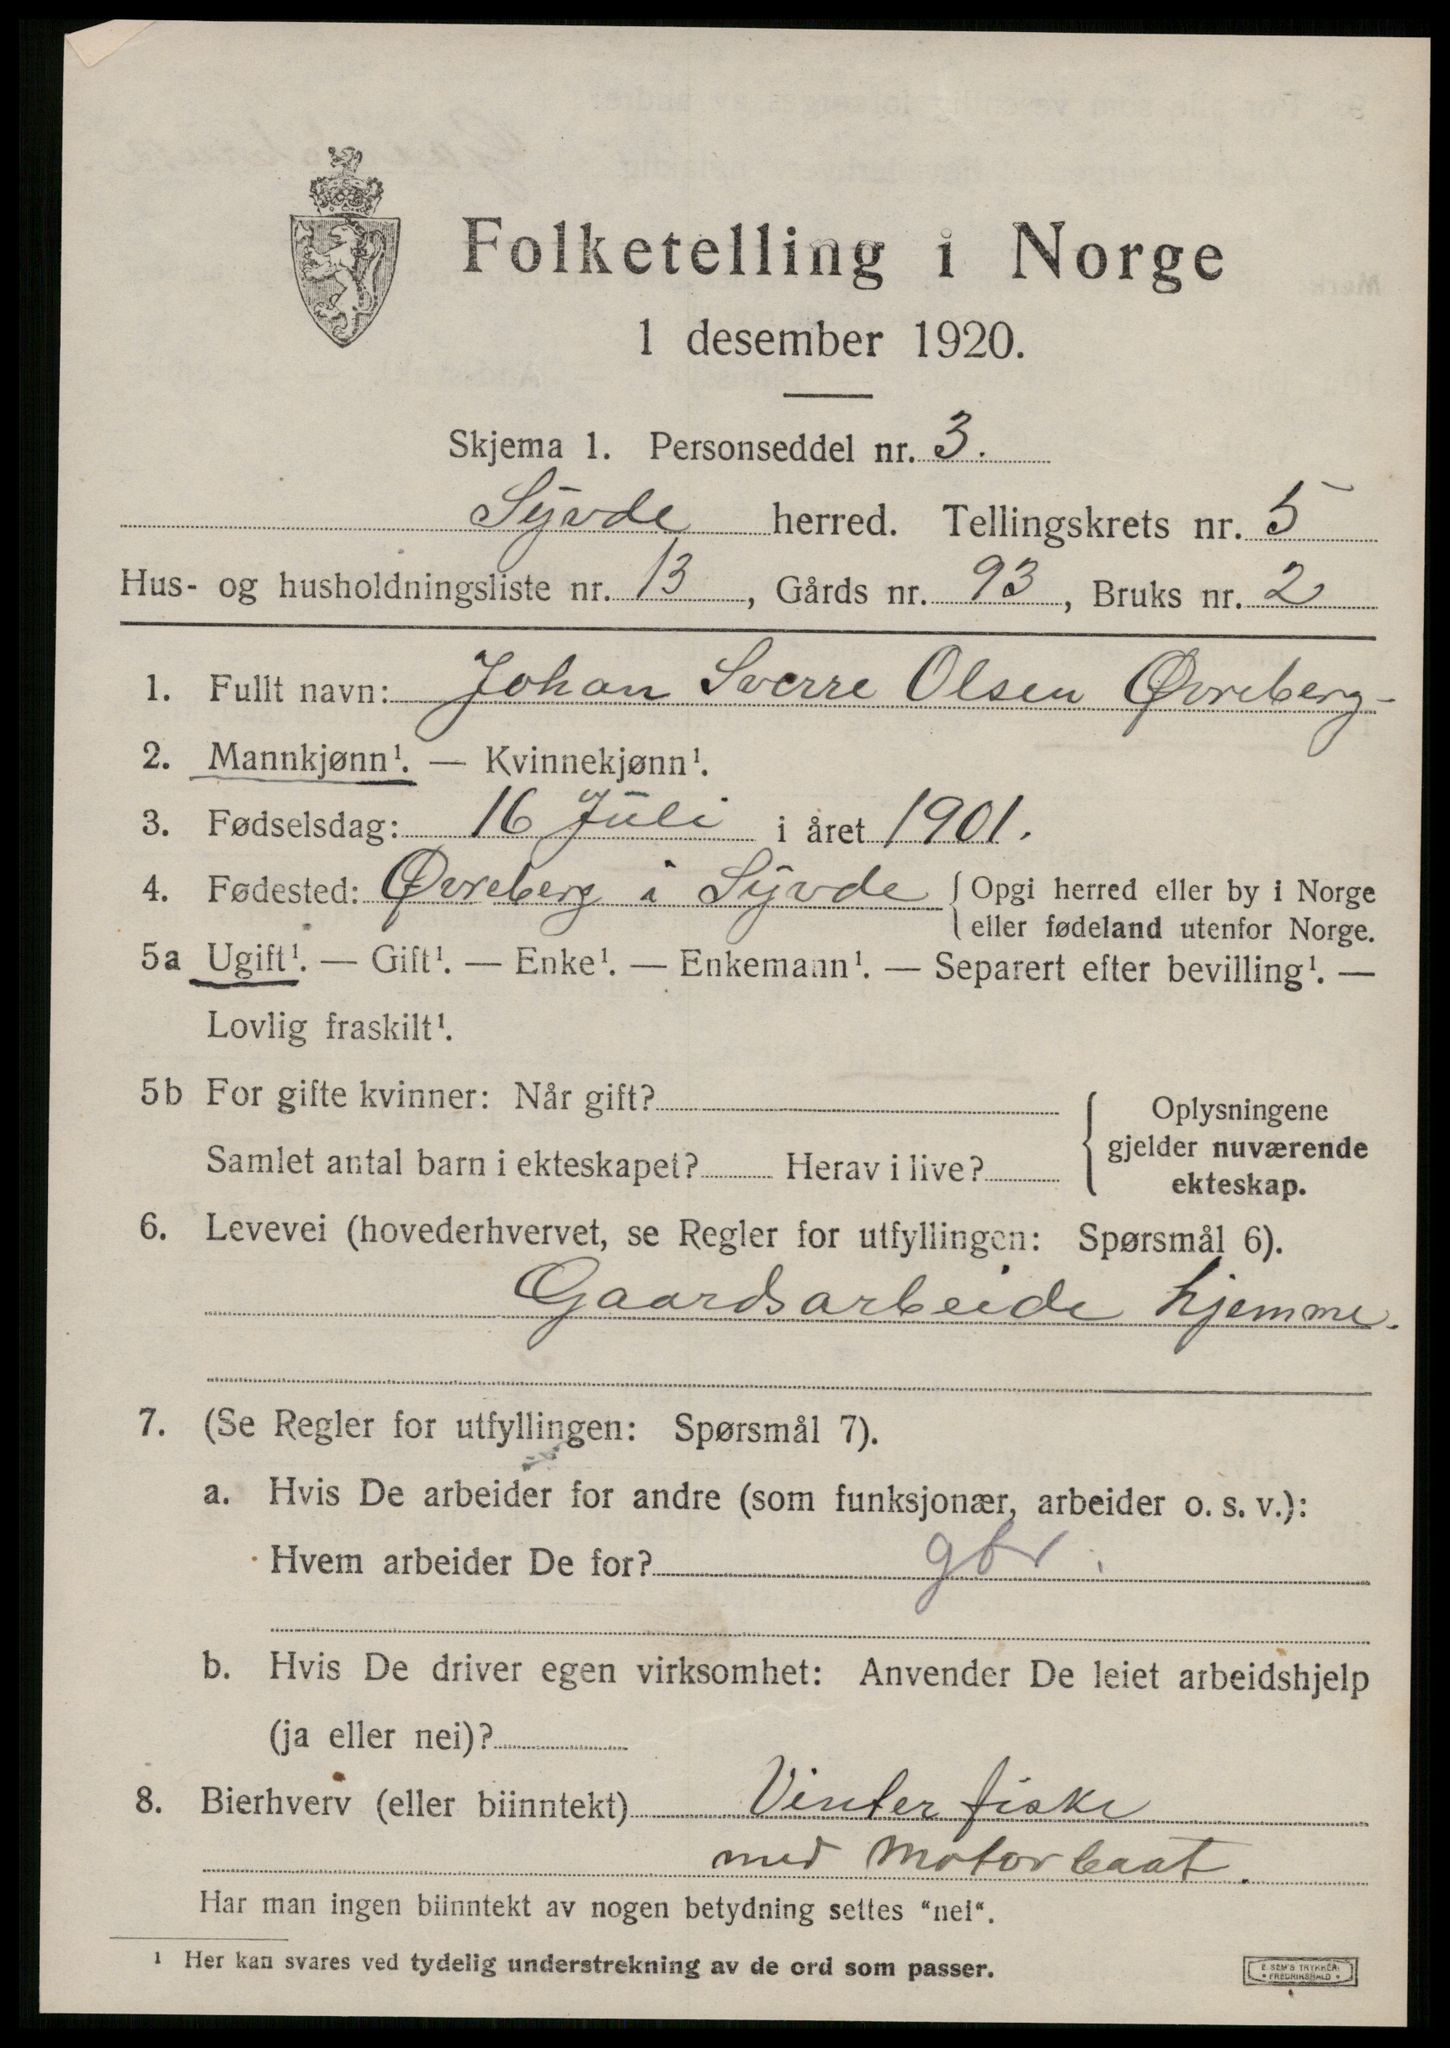 Folketelling i Norge
1 desember 1920.
Skjema 1. Personseddel nr. 3.
Syvde herred. Tellingskrets nr. 5
Hus- og husholdningsliste nr. 13, Gårds nr. 93, Bruks nr. 2
1. Fullt navn: Johan Sverre Olsen Øvreberg
2. Mannkjønn¹. — Kvinnekjønn¹.
3. Fødselsdag: 16 Juli i året 1901.
4. Fødested: Øvreberg i Syvde { Opgi herred eller by i Norge
eller fødeland utenfor Norge.
5a Ugift¹. — Gift¹. — Enke¹. — Enkemann¹. — Separert efter bevilling¹. —
Lovlig fraskilt¹.
5b For gifte kvinner: Når gift?
Samlet antal barn i ekteskapet? Herav i live?
{ Oplysningene
gjelder nuværende
ekteskap.
6. Levevei (hovederhvervet, se Regler for utfyllingen: Spørsmål 6).
Gaardsarbeide hjemme.
7. (Se Regler for utfyllingen: Spørsmål 7).
a. Hvis De arbeider for andre (som funksjonær, arbeider o. s. v.):
Hvem arbeider De for? gbr.
b. Hvis De driver egen virksomhet: Anvender De leiet arbeidshjelp
(ja eller nei)?
8. Bierhverv (eller biinntekt) Vinterfiske
med Motorbaat.
Har man ingen biinntekt av nogen betydning settes "nei".
¹ Her kan svares ved tydelig understrekning av de ord som passer.
E. SEM'S TRYKKERI
FREDRIKSHALD